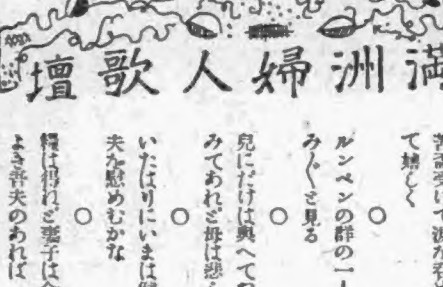 滿洲婦人歌壇
て嬉しく
○
ルンペンの群の一
み〴〵と見る
○
兒にだけは與へて
みてあれど母は悲
○
いたはりにいまは
夫を慰めむかな
○
糧は得れど妻子は
よき吾夫のあれば